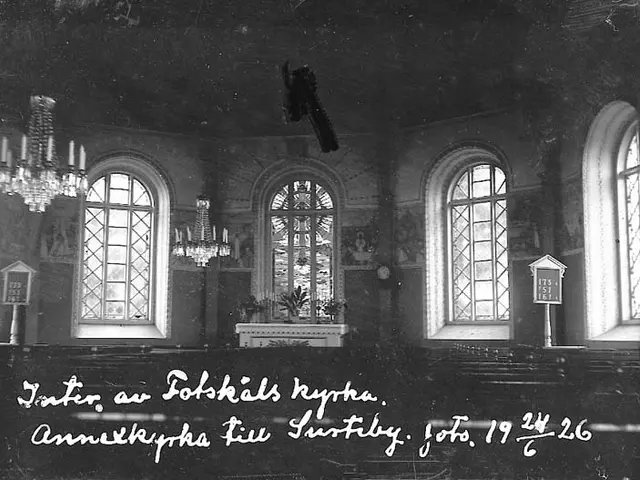 173
157
161
Inter. av Fotskäls kyrka.
Annexkyrka till Surteby. foto. 19 24/6 26